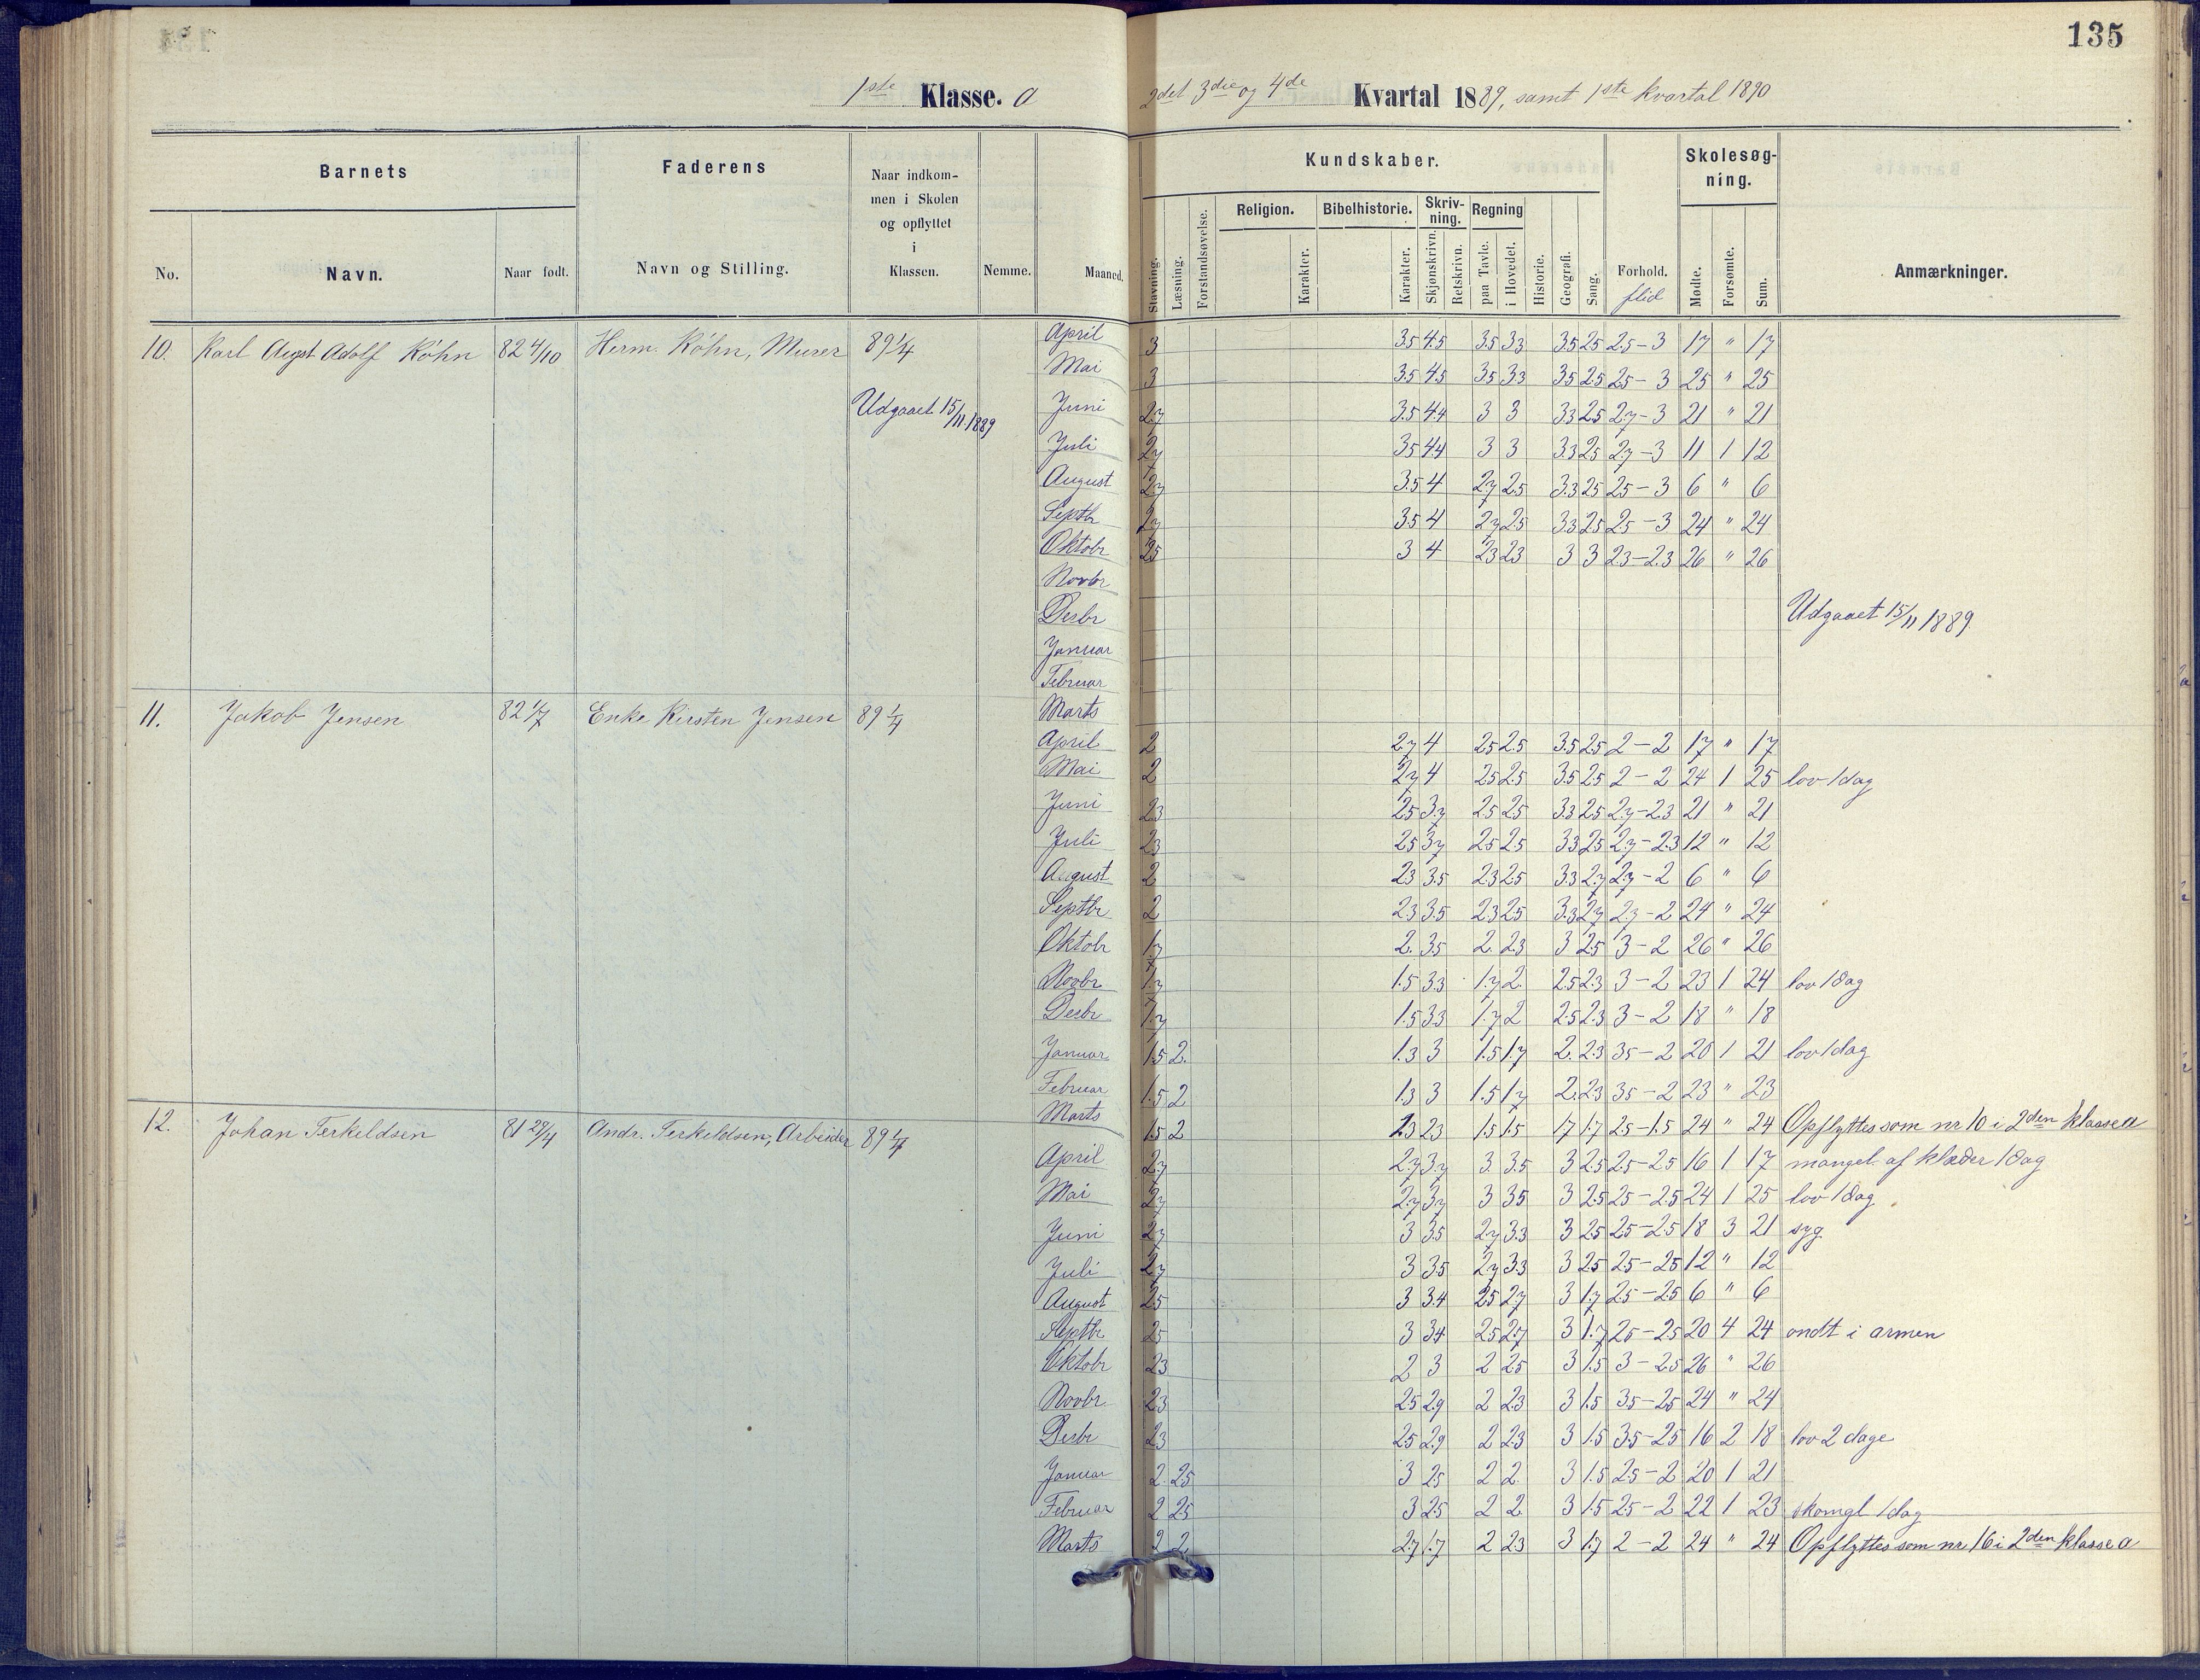 135
1ste Klasse. a 2det 3die og 4de Kvartal 1889, samt 1ste kvartal 1890
Barnets Faderens Naar indkommen i Skolen og opflyttet i Klassen. Nemme. Maaned. Kundskaber. Forhold. flid Skolesøgning. Anmærkninger.
No. Navn. Naar født. Navn og Stilling. Stavning. Læsning. Forstandsøvelse. Religion. Karakter. Bibelhistorie. Karakter. Skrivning. Skjønskrivn. Retskrivn. Regning paa Tavle. i Hovedet. Historie. Geografi. Sang. Mødte. Forsømte. Sum.
10. Karl Augst Adolf Köhn 82 4/10 Herm. Köhn, Murer 89 1/4 April 3 3.5 4.5 3.5 3.3 3.5 2.5 2.5-3 17 " 17
Mai 3 3.5 4.5 3.5 3.3 3.5 2.5 2.5-3 25 " 25
Udgaaet 15/11.1889 Juni 2.7 3.5 4.4 3 3 3.3 2.5 2.7-3 21 " 21
Juli 2.7 3.5 4.4 3 3 3.3 2.5 2.7-3 11 1 12
August 2.7 3.5 4 2.7 2.5 3.3 2.5 2.5-3 6 " 6
Septbr 2.7 3.5 4 2.7 2.5 3.3 2.5 2.5-3 24 " 24
Oktobr 2.5 3 4 2.3 2.3 3 3 2.3-2.3 26 " 26
Novbr
Desbr Udgaaet 15/11 1889.
Januar
Februar
11. Jakob Jensen 82 1/7 Enke Kirsten Jensen 89 1/4 Marts
April 2 2.7 4 2.5 2.5 3.5 2.5 2-2 17 " 17
Mai 2 2.7 4 2.5 2.5 3.5 2.5 2-2 24 1 25 lov 1 dag
Juni 2.3 2.5 3.7 2.5 2.5 3.3 2.5 2.7-2.3 21 " 21
Juli 2.3 2.5 3.7 2.5 2.5 3.3 2.5 2.7-2.3 12 " 12
August 2 2.3 3.5 2.3 2.5 3.3 2.7 2.7-2 6 " 6
Septbr 2 2.3 3.5 2.3 2.5 3.3 2.7 2.7-2 24 " 24
Oktobr 1.7 2. 3.5 2. 2.3 3 2.5 3-2 26 " 26
Novbr 1.7 1.5 3.3 1.7 2. 2.5 2.3 3-2 23 1 24 lov 1 dag
Desbr 1.7 1.5 3.3 1.7 2 2.5 2.3 3-2 18 " 18
Januar 1.5 2. 1.3 3 1.5 1.7 2. 2.3 3.5-2 20 1 21 lov 1 dag
Februar 1.5 2 1.3 3 1.5 1.7 2. 2.3 3.5-2 23 " 23
12. Johan Terkeldsen 81 29/4 Andr. Terkeldsen, Arbeider 89 1/4 Marts 1.5 2 1.3 2.3 1.5 1.5 1.7 1.7 2.5-1.5 24 " 24 Opflyttes som nr 10 i 2den klasse a
April 2.7 2.7 3.7 3. 3.5 3 2.5 2.5-2.5 16 1 17 mangel af klæder 1 dag
Mai 2.7 2.7 3.7 3 3.5 3 2.5 2.5-2.5 24 1 25 lov 1 dag
Juni 2.7 3 3.5 2.7 3.3 3 2.5 2.5-2.5 18 3 21 syg
Juli 2.7 3 3.5 2.7 3.3 3 2.5 2.5-2.5 12 " 12
August 2.5 3 3.4 2.5 2.7 3 1.7 2.5-2.5 6 " 6
Septbr 2.5 3 3.4 2.5 2.7 3 1.7 2.5-2.5 20 4 24 ondt i armen
Oktobr 2.3 2 3 2 2.5 3 1.5 3-2.5 26 " 26
Novbr 2.3 2.5 2.9 2 2.3 3 1.5 3.5-2.5 24 " 24
Desbr 2.3 2.5 2.9 2 2.3 3 1.5 3.5-2.5 16 2 18 lov 2 dage
Januar 2. 2.5 3 2.5 2 2. 3 1.5 2.5-2 20 1 21
Februar 2 2.5 3 2.5 2 2. 3 1.5 2.5-2 22 1 23 skomgl 1 dag
Marts 2 2. 2.7 1.7 2 2.3 3 1.7 2-2 24 " 24 Opflyttes som nr 16 i 2den klasse a